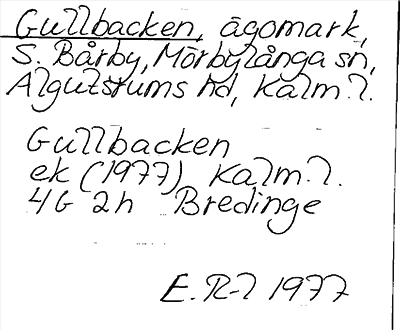 Gullbacken, ägomark,
S. Bårby, Mörbylånga sn,
Algutsrums hd, Kalm. l.
Gullbacken
ek (1977) Kalm. l.
4G 2h Bredinge
E. R-l 1977